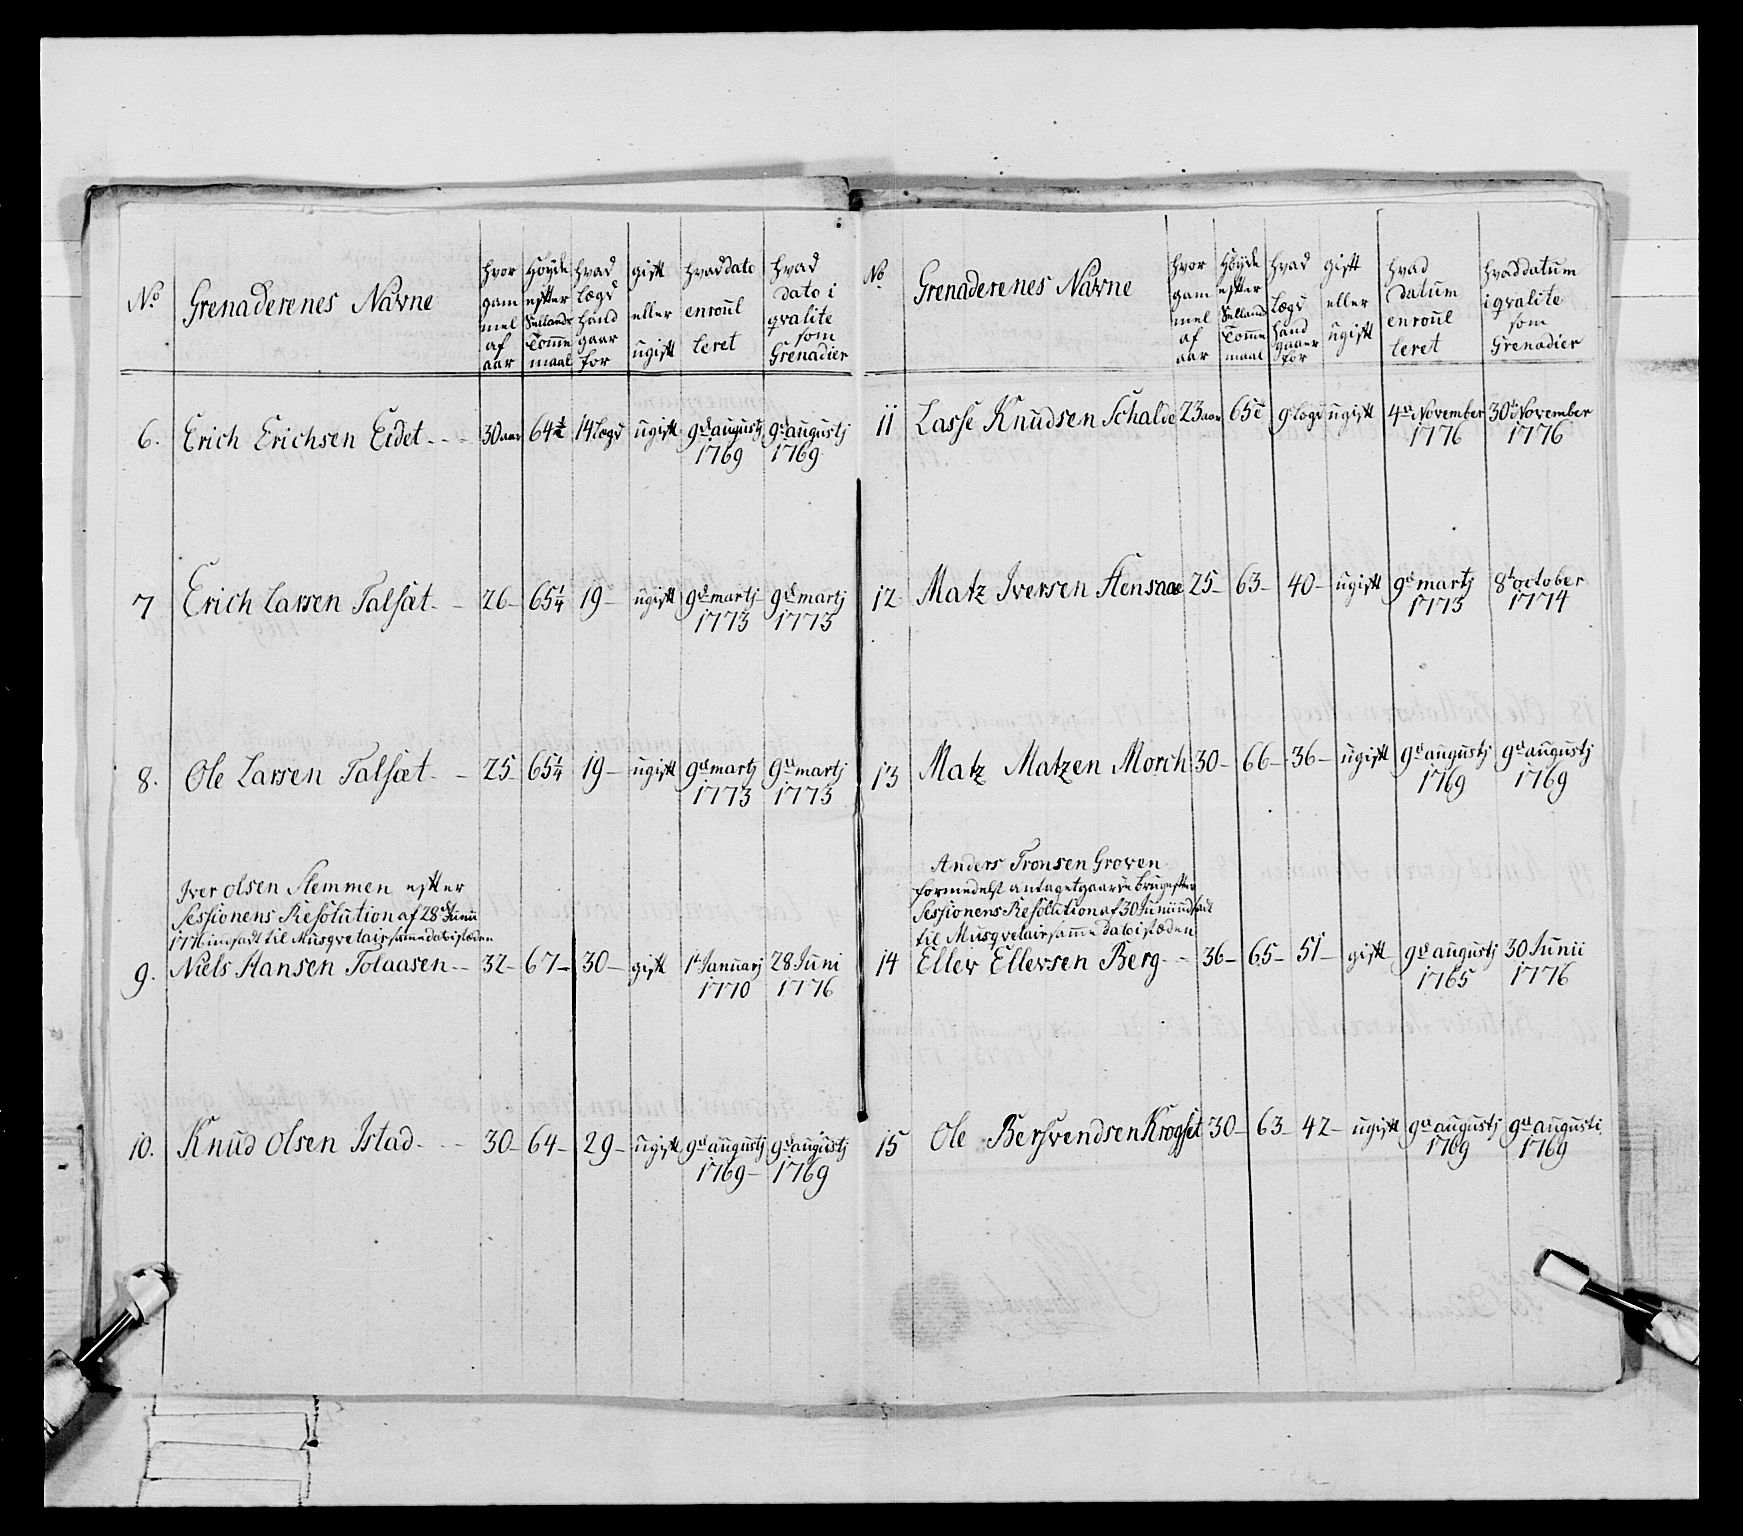 No Grenaderenes Navne hvor gammel af aar Høyde efter Siellands Tomme maal hvad Lægd hand gaar for gift eller ugift hvad dato enroulleret hvad dato i qvalite som Grenadier
6. Erich Erichsen Eidet 30 aar 64 14 Lægd ugift 9d augustj 9d augustj
1769 1769
7 Erich Larsen Talsæt 26 65 1/4 19 ugift 9d martj 9d martj
1773 1773
8. Ole Larsen Talsæt 25 65 1/4 19 ugift 9d martj 9d martj
1773 1773
Iver Olsen Slemmen efter
Sessionens Resolution af 28d Junii
1776 indsadt til Musqvetair samme dato isteden
9. Niels Hansen Tolaasen 32 67 30 gift 1t Januarj 28 Juni
1770 1776
10. Knud Olsen Istad 30 64 29 ugift 9d augustj 9d augustj
1769 1769
No Grenaderenes Navne hvor gammel af aar Høyde efter Siellands Tomme maal hvad Lægd hand gaaer for gift eller ugift hvad datum enroulleret hvad datum i qvalite som Grenadier
11 Lasse Knudsen Schalde 23 aar 65 9 Lægd ugift 4de November 30te November
1776 1776
12 Matz Iversen Stensaae 25 63 40 ugift 9d martj 8t october
1773 1774
13 Matz Matzen Morch 30 66 36 ugift 9d augustj 9d augustj
1769 1769
Anders Tronsen Groven
formedelst antaget gaard i brug efter
Sessionens Resolution af 30 Junii udsadt
til Musqvetair samme dato isteden
14 Ellev Ellevsen Berg 36 65 51 gift 9d augustj 30 Junii
1765 1776
15 Ole Bersvendsen Krogsæt 30 63 42 ugift 9d augustj 9d augusti
1769 1769